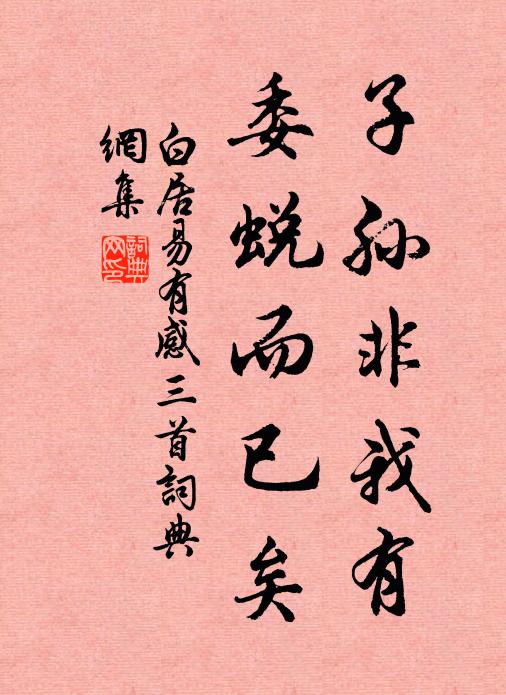 子孙非我有
委蜕而已矣
白居易有感三首詞典
網集
詞典网印